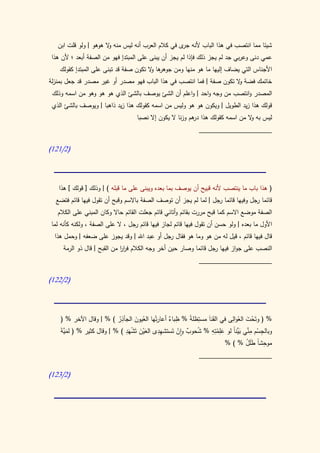 شيئا مما انتصب في هذا الباب لأنه جرى في كلام العرب أنه ليس منه ولا هوهو | ولو قلت ابن
عمي دنى وعربي جد لم يجز ذلك فإذا لم يجز أن يبنى على المبتدإ فهو من الصفة أبعد ؛ لأن هذا
الأجناس التي يضاف إليها ما هو منها ومن جوهرها ولا تكون صفة قد تبنى على المبتدإ كقولك
خاتمك فضة ولا تكون صفة | فما انتصب في هذا الباب فهو مصدر أو غير مصدر قد جعل بمنزلة
المصدر وانتصب من وجه واحد | واعلم أن الشئ يوصف بالشئ الذي هو هو وهو من اسمه وذلك
قولك هذا زيد الطويل | ويكون هو هو وليس من اسمه كقولك هذا زيد ذاهبا | ويوصف بالشئ الذي
ليس به ولا من اسمه كقولك هذا درهم وزنا لا يكون إلا نصبا
(121/2)
( هذا باب ما ينتصب لأنه قبيح أن يوصف بما بعده ويبنى على ما قبله ) | وذلك [ قولك ] هذا
قائما رجل وفيها قائما رجل | لما لم يجز أن توصف الصفة بالاسم وقبح أن تقول فيها قائم فتضع
الصفة موضع الاسم كما قبح مررت بقائم وأتاني قائم جعلت القائم حالا وكان المبني على الكلام
الأول ما بعده | ولو حسن أن تقول فيها قائم لجاز فيها قائم رجل ، لا على الصفة ، ولكنه كأنه لما
قال فيها قائم ، قيل له من هو وما هو فقال رجل أو عبد الله | وقد يجوز على ضعفه | وحمل هذا
النصب على جواز فيها رجل قائما وصار حين أخر وجه الكلام فرارا من القبح | قال ذو الرمة
(122/2)
% ( وتَحْت العَوالى في القَنا مستظلةً % ظباءٌ أعارتْها العُيونَ الجآذرُ ) % | وقال الآخر % (
وبالجسْم منِّى بيِّناً لو علِمْتِهِ % شُحوبٌ وإنْ تَستشهِدى العَيْنَ تَشهَدِ ) % | وقال كثير % ( لميَّةَ
موحشاً طلَلٌ % ) %
(123/2)